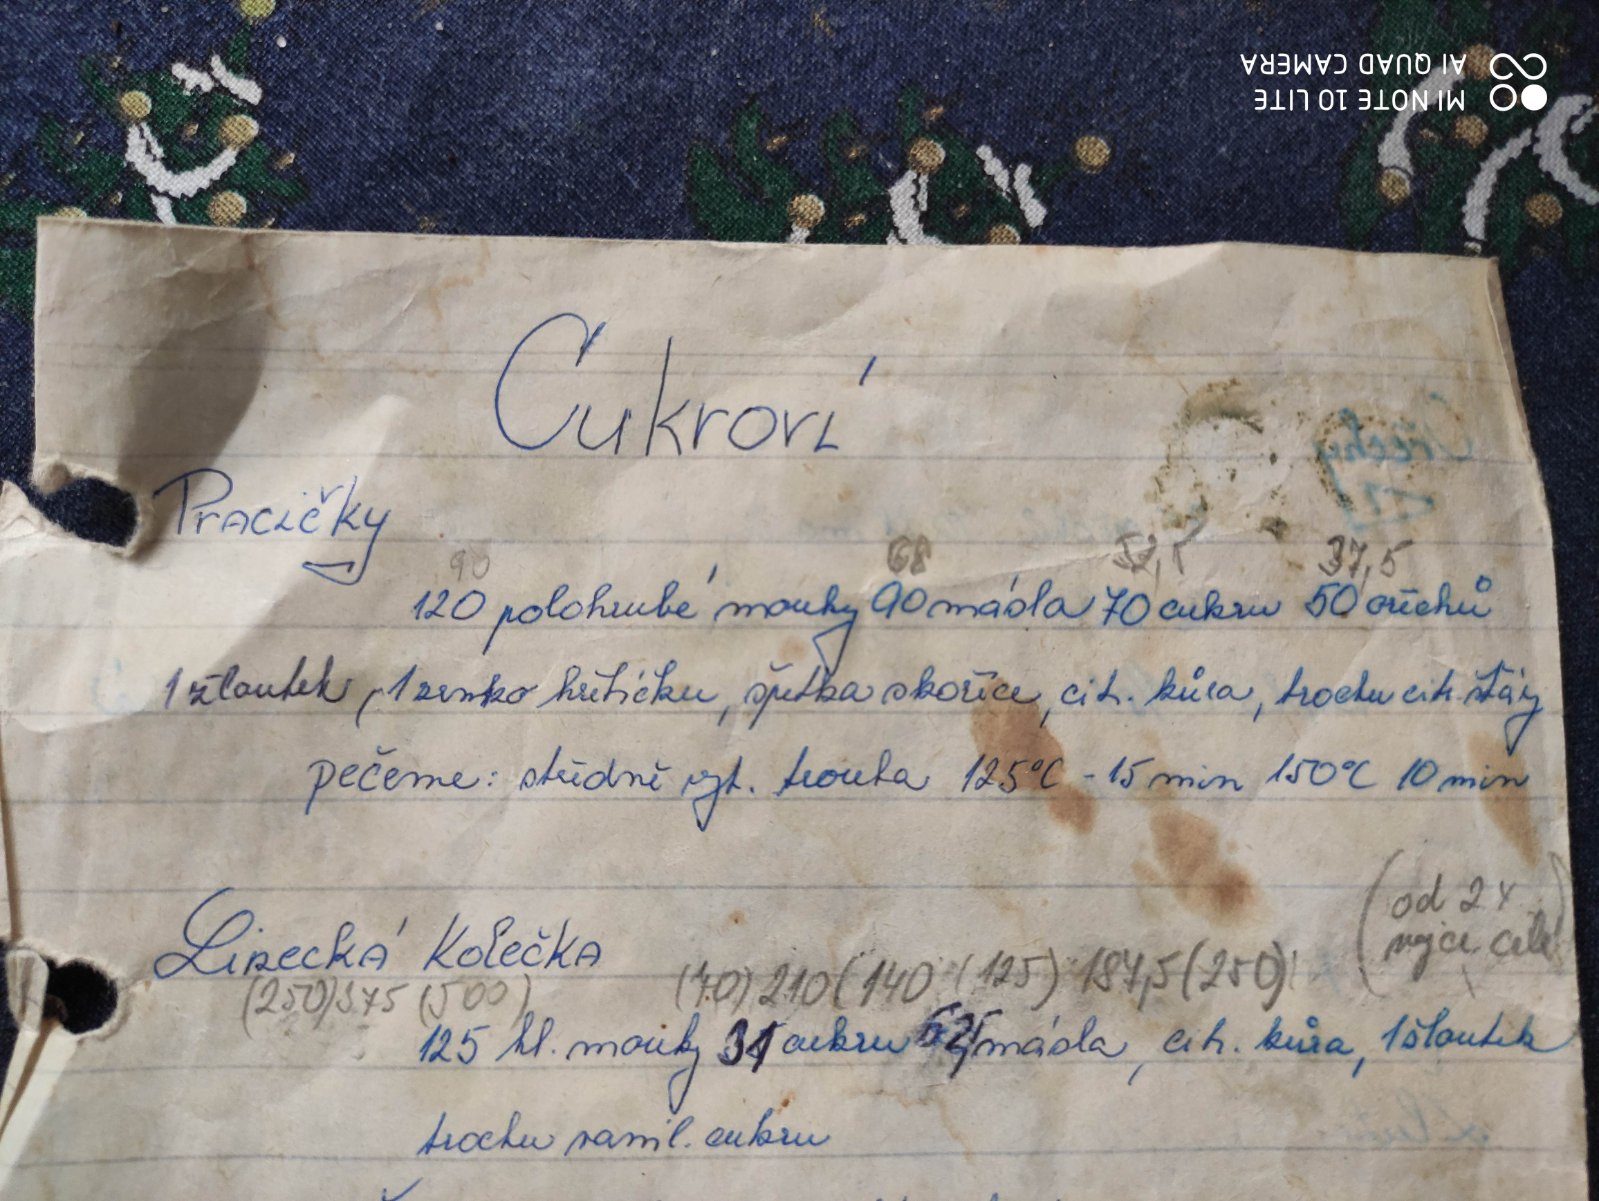 MI NOTE 10 LITE
AI QUAD CAMERA
Cukroví
Ořechy
Pracičky
90 68 52,5 37,5
120 polohrubé mouky 90 másla 70 cukru 50 ořechů
1 žloutek, 1 zrnko hřebíčku, špetka skořice, cit. kůra, trochu cit. šťávy
pečeme: středně vyt. trouba 125°C - 15 min 150°C 10 min
(od 2 x
vejce celé)
Linecká kolečka
(250) 375 (500) (70) 210 (140 (125) 187,5 (250)
125 hl. mouky 31 cukru 62,5 másla, cit. kůra, 1 žloutek
trochu vanil. cukru